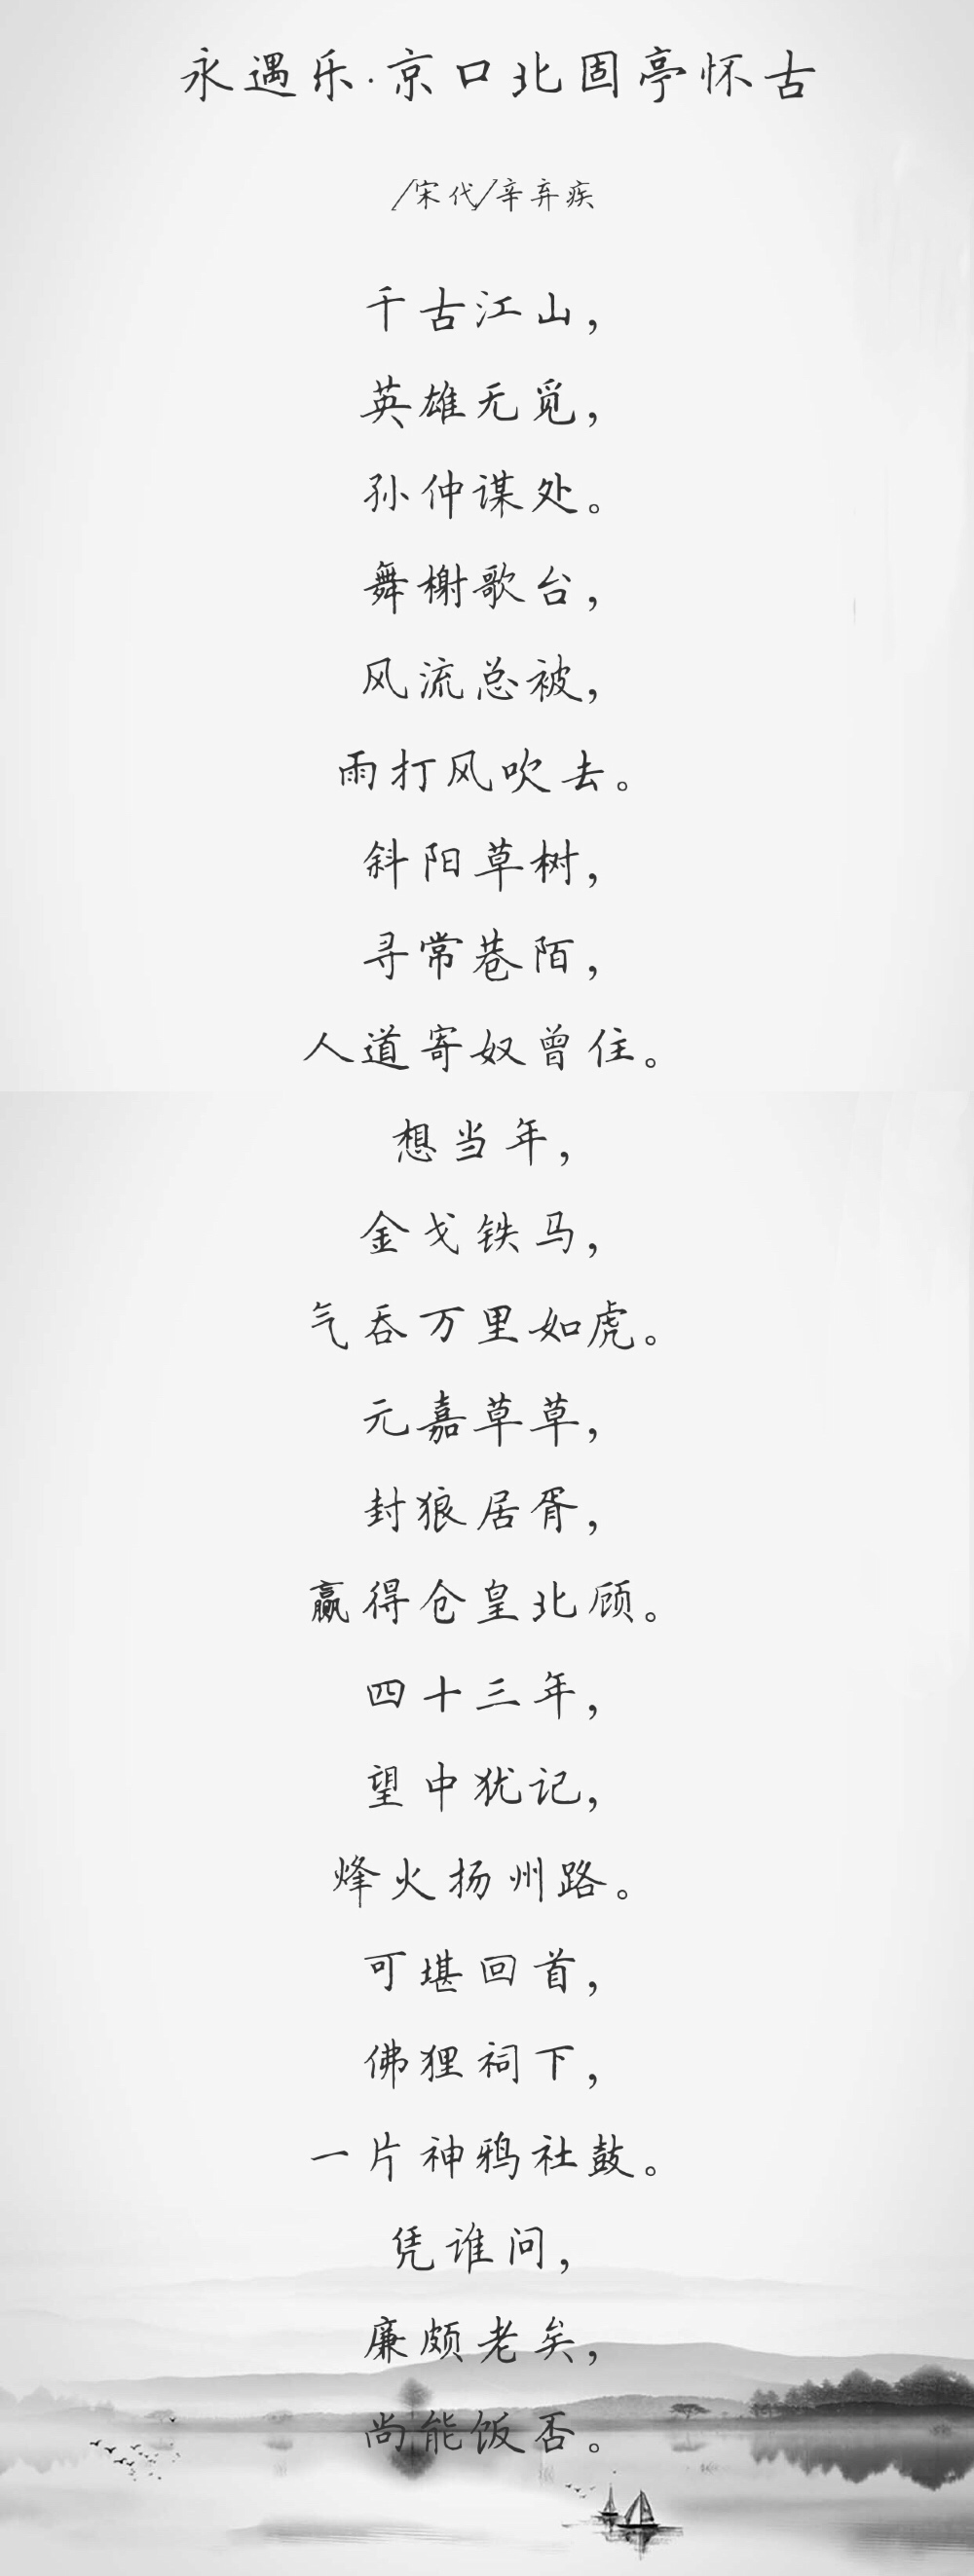 永遇乐·京口北固亭怀古
/宋代/辛弃疾
千古江山，
英雄无觅，
孙仲谋处。
舞榭歌台，
风流总被，
雨打风吹去。
斜阳草树，
寻常巷陌，
人道寄奴曾住。
想当年，
金戈铁马，
气吞万里如虎。
元嘉草草，
封狼居胥，
赢得仓皇北顾。
四十三年，
望中犹记，
烽火扬州路。
可堪回首，
佛狸祠下，
一片神鸦社鼓。
凭谁问，
廉颇老矣，
尚能饭否。